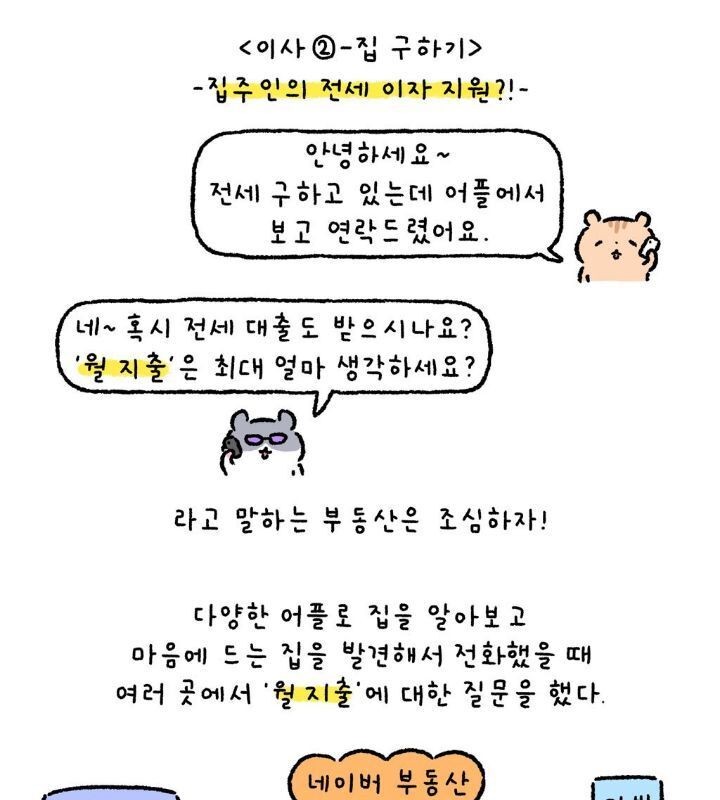 <이사②-집 구하기>
-집주인의 전세 이자 지원?!-
안녕하세요~
전세 구하고 있는데 어플에서
보고 연락드렸어요.
네~ 혹시 전세 대출도 받으시나요?
'월 지출'은 최대 얼마 생각하세요?
라고 말하는 부동산은 조심하자!
다양한 어플로 집을 알아보고
마음에 드는 집을 발견해서 전화했을 때
여러 곳에서 '월 지출'에 대한 질문을 했다.
네이버 부동산